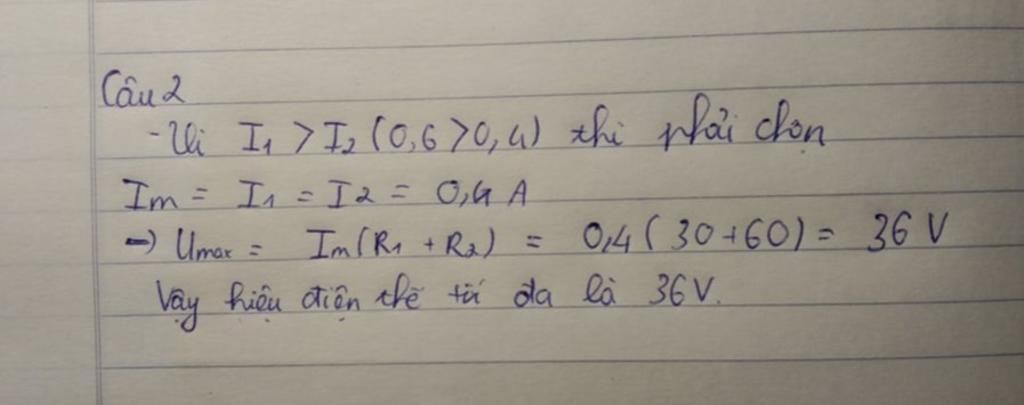 Câu 2
- Vì I₁ > I₂ (0,6 > 0,4) thì phải chọn
Im = I₁ = I2 = 0,4 A
=) Umax = Im(R₁ + R₂) = 0,4 (30+60) = 36 V
Vậy hiệu điện thế tối đa là 36V.